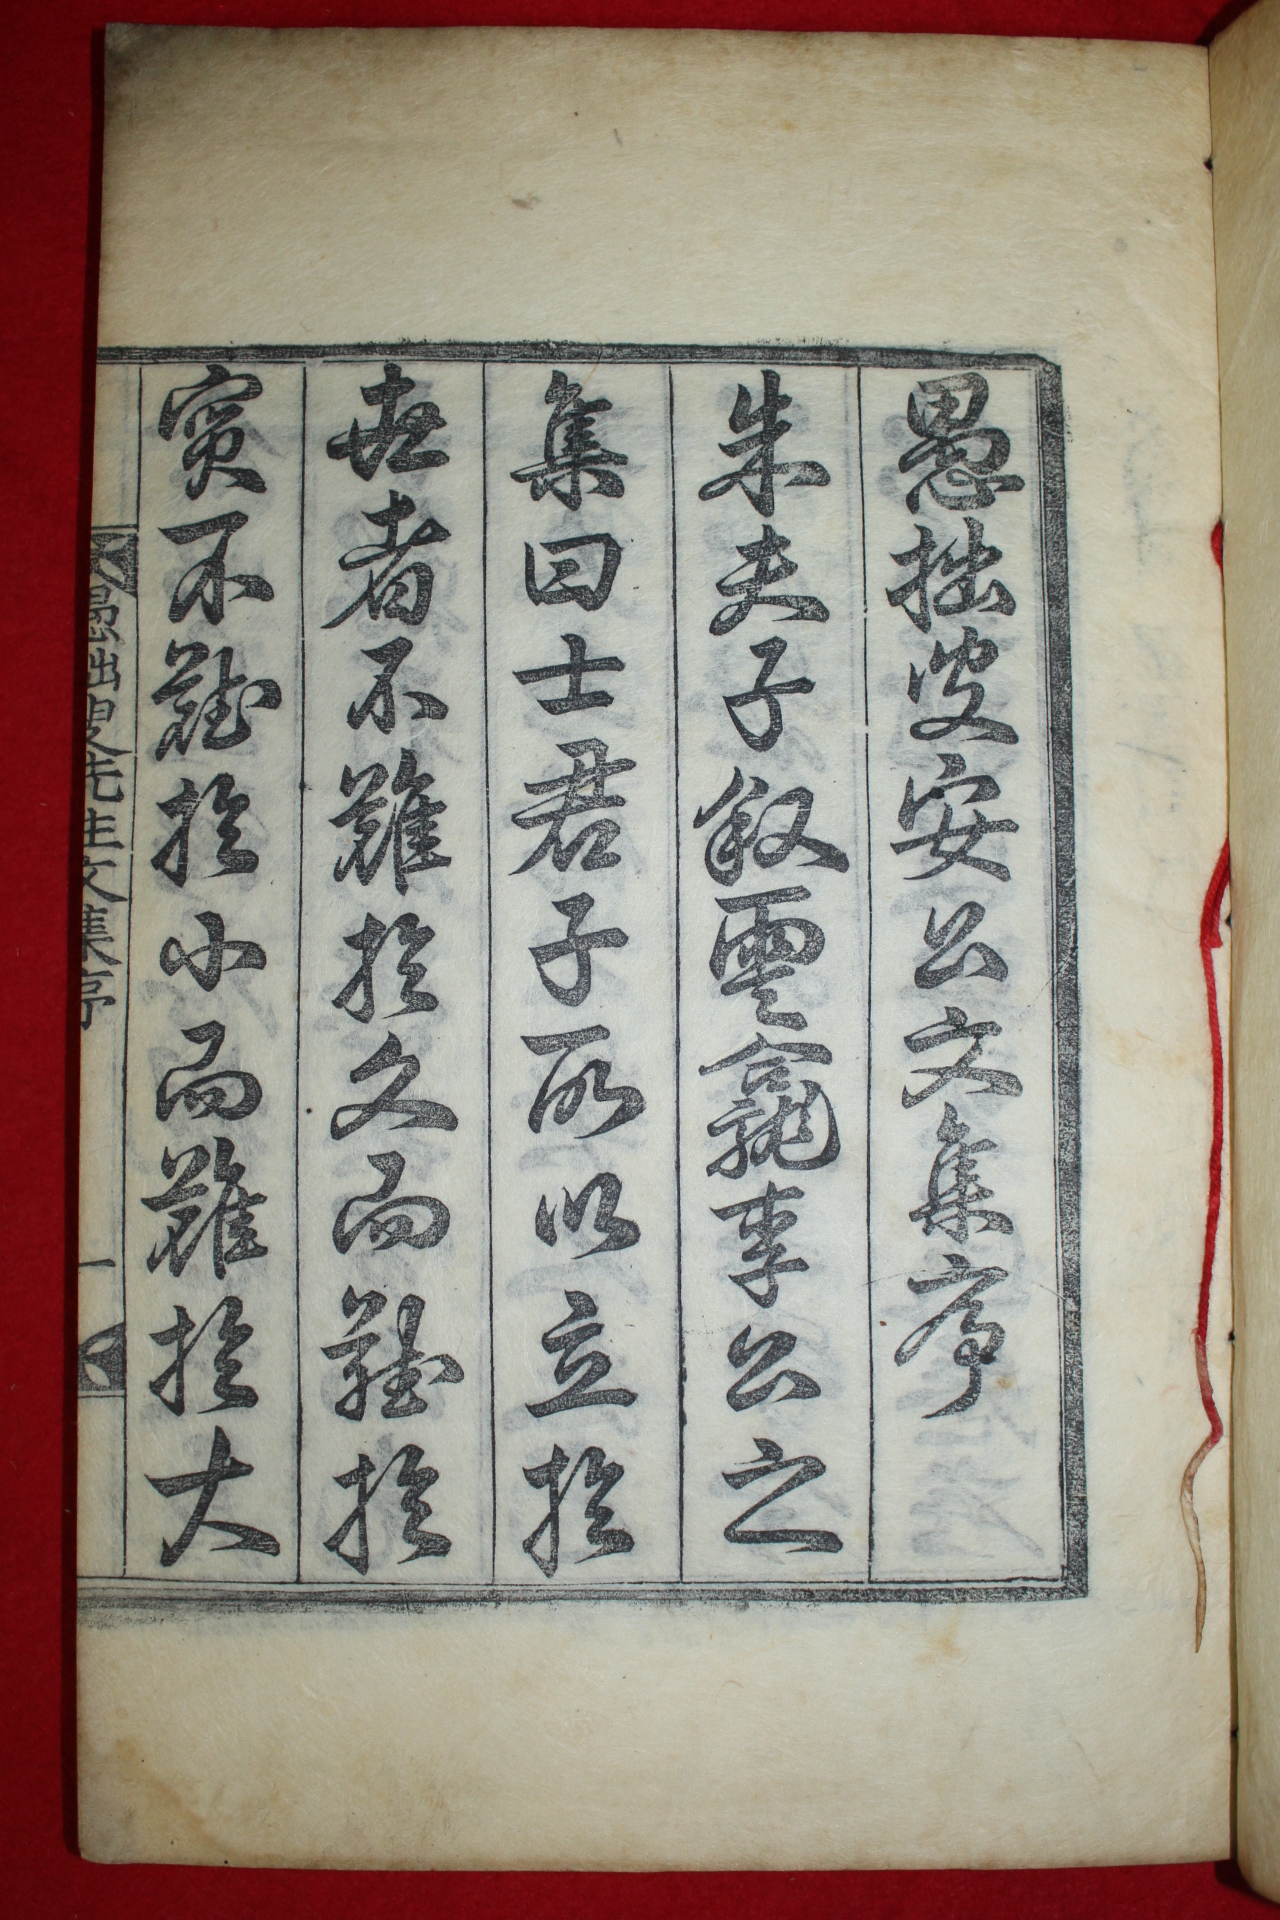 愚拙叟安公文集序
朱夫子叙雲龕李公之
集曰士君子所以立於
世者不難於文而難於
實不難於小而難於大
愚拙叟先生文集序 一